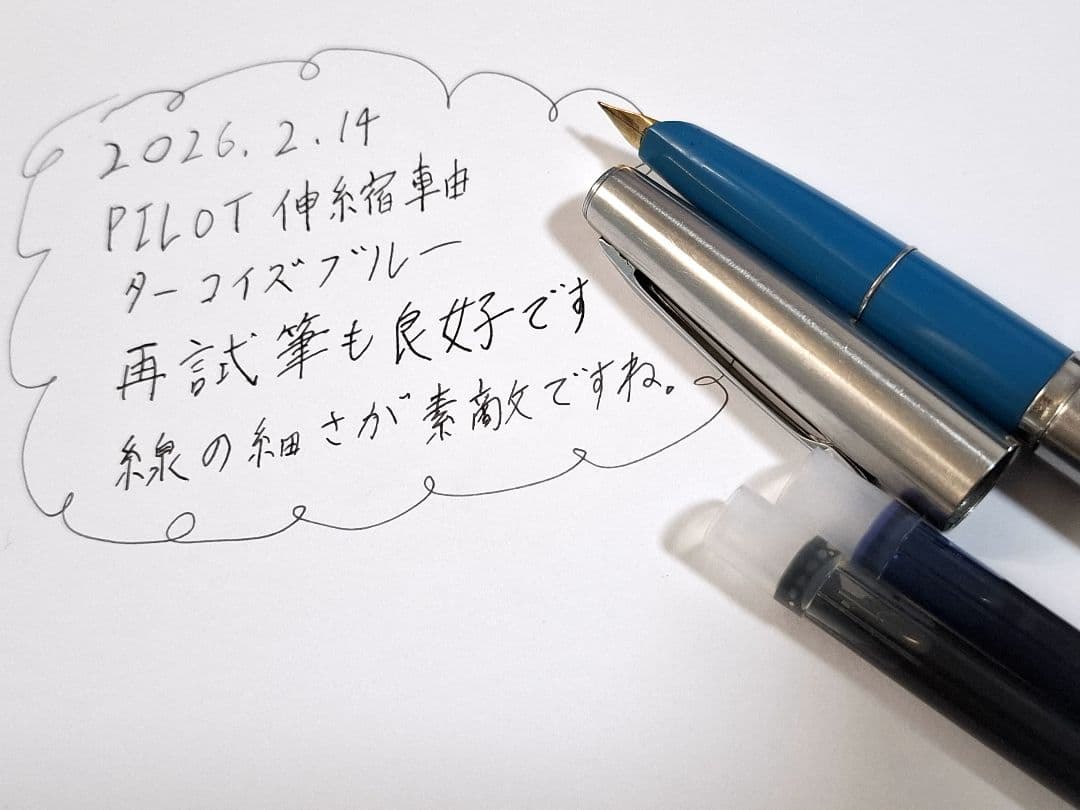 2026.2.14
PILOT 伸縮軸
ターコイズブルー
再試筆も良好です
線の細さが素敵ですね。